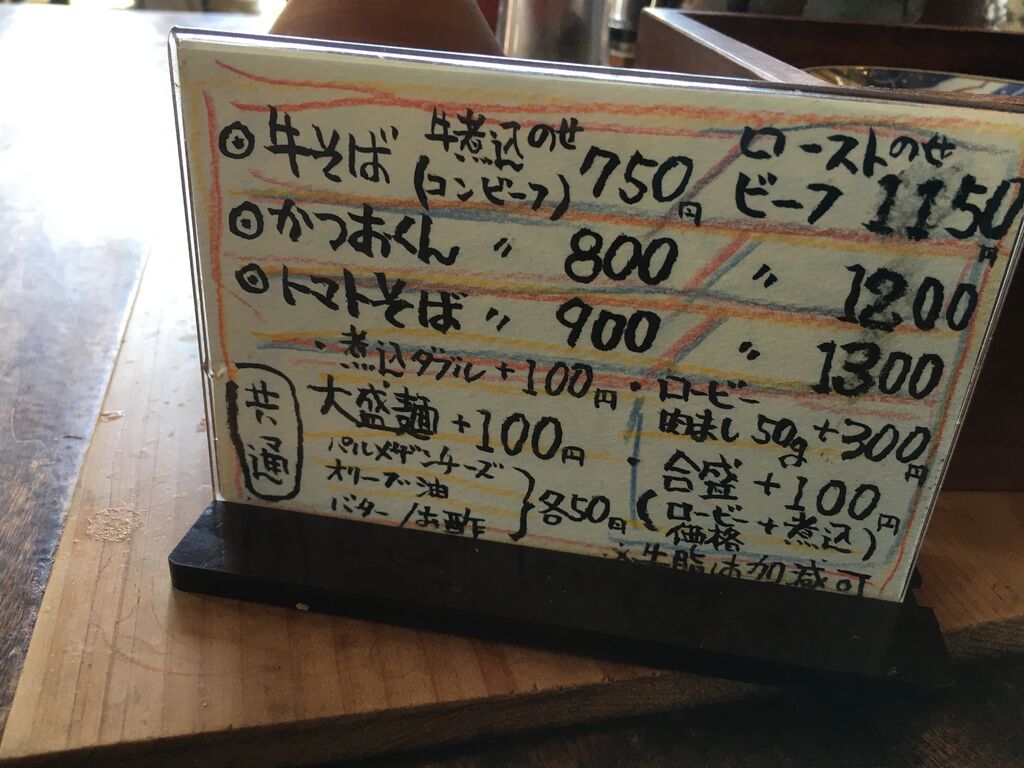 ◎牛そば 牛煮込のせ (コンビーフ) 750円 ローストビーフのせ 1150円
◎かつおくん 〃 800 〃 1200
◎トマトそば 〃 900 〃 1300
共通
・煮込ダブル+100円
大盛麺+100円
パルメザンチーズ
オリーブ油
バター/お酢
各50円
・ロービー
肉まし50g+300円
・合盛
合盛+100円
(ロービー+煮込)
価格
※牛脂は加減可